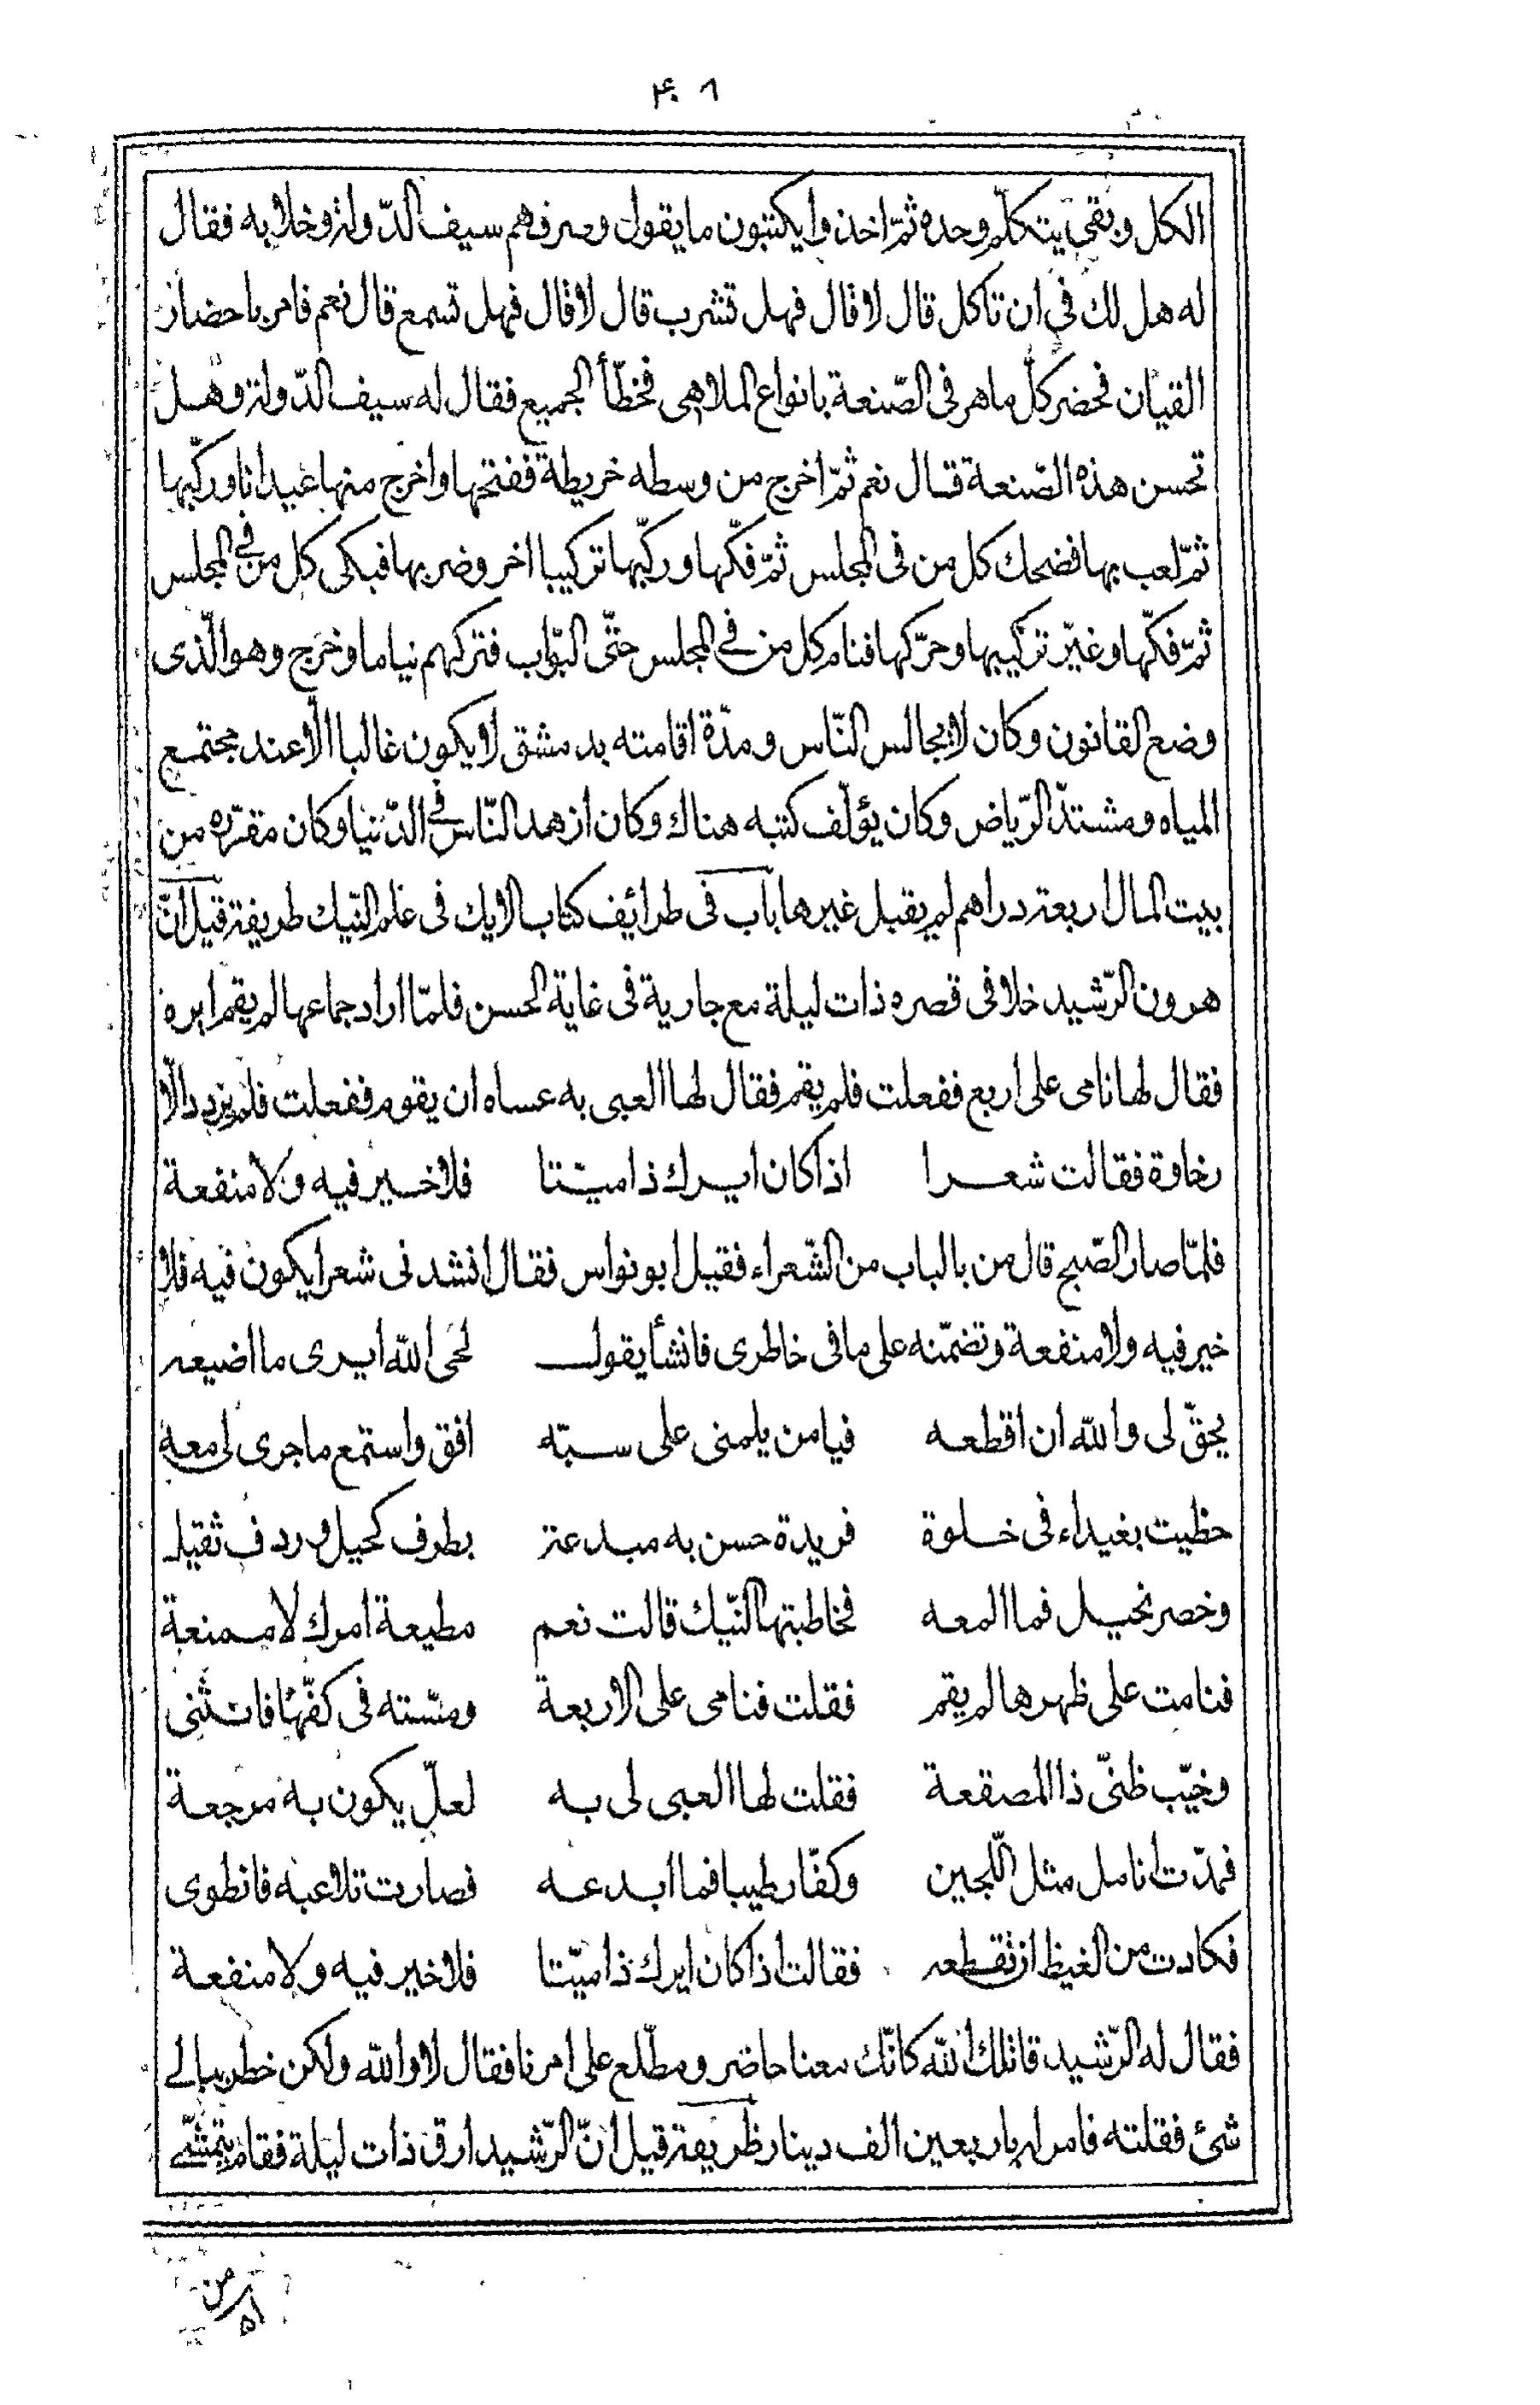 ۴۰۸
الكل وبقى يتكلّم وحده ثمّ اخذوا يكتبون ما يقول وصرفهم سيف الدّولة وخلا به فقال
له هل لك فى ان تاكل قال لا قال فهل تشرب قال لا قال فهل تسمع قال نعم فامر باحضار
القيان فحضر كلّ ماهر فى الصّنعة بانواع الملاهى فخطّأ الجميع فقال له سيف الدّولة وهل
تحسن هذه الصّنعة قال نعم ثمّ اخرج من وسطه خريطة ففتحها واخرج منها عيدانا وركّبها
ثمّ لعب بها فضحك كل من فى المجلس ثمّ فكّها وركّبها تركيبا اخر وضربها فبكى كل من فى المجلس
ثمّ فكّها وغيّر تركيبها وحرّكها فنام كل من فى المجلس حتّى البوّاب فتركهم نياما وخرج وهو الّذى
وضع القانون وكان لا يجالس النّاس ومدّة اقامته بدمشق لا يكون غالبا الّا عند مجتمع
المياه ومشتدّ الرّياض وكان يؤلّف كتبه هناك وكان ازهد النّاس فى الدّنيا وكان مقرّره من
بيت المال اربعة دراهم لم يقبل غيرها باب فى طرائف كتاب الايك فى علم النّيك طريفة قيل انّ
هرون الرّشيد خلا فى قصره ذات ليلة مع جارية فى غاية الحسن فلمّا اراد جماعها لم يقم ايره
فقال لها نامى على اربع ففعلت فلم يقم فقال لها العبى به عساه ان يقوم ففعلت فلم يزدد الّا
رخاوة فقالت شعرا اذا كان ايرك ذا ميّتا فلا خير فيه ولا منفعة
فلمّا صار الصّبح قال من بالباب من الشّعراء فقيل ابو نواس فقال انشدنى شعرا يكون فيه فلا
خير فيه ولا منفعة وتضمّنه على ما فى خاطرى فانشأ يقول لحى الله ايرى ما اضيعه
يحقّ لى والله ان اقطعه فيا من يلمنى على سبّه افق واستمع ما جرى لى معه
حظيت بغيداء فى خلوة فريدة حسن به مبدعة بطرف كحيل وردف ثقيل
وخصر نحيل فما المعه فخاطبتها النّيك قالت نعم مطيعة امرك لا ممنعة
فنامت على ظهرها لم يقم فقلت فنامى على الاربعة ومسّته فى كفّها فانثنى
وخيّب ظنّى ذا المصقعة فقلت لها العبى لى به لعلّ يكون به مرجعة
فمدّت انامل مثل اللّجين وكفّا رطيبا فما ابدعه فصارت تلاعبه فانطوى
فكادت من الغيظ ان تقطعه فقالت اذا كان ايرك ذا ميّتا فلا خير فيه ولا منفعة
فقال له الرّشيد قاتلك الله كانّك معنا حاضر ومطّلع على امرنا فقال لا والله ولكن خطر ببالى
شئ فقلته فامر له باربعين الف دينار ظريفة قيل انّ الرّشيد ارق ذات ليلة فقام يتمشّى
من